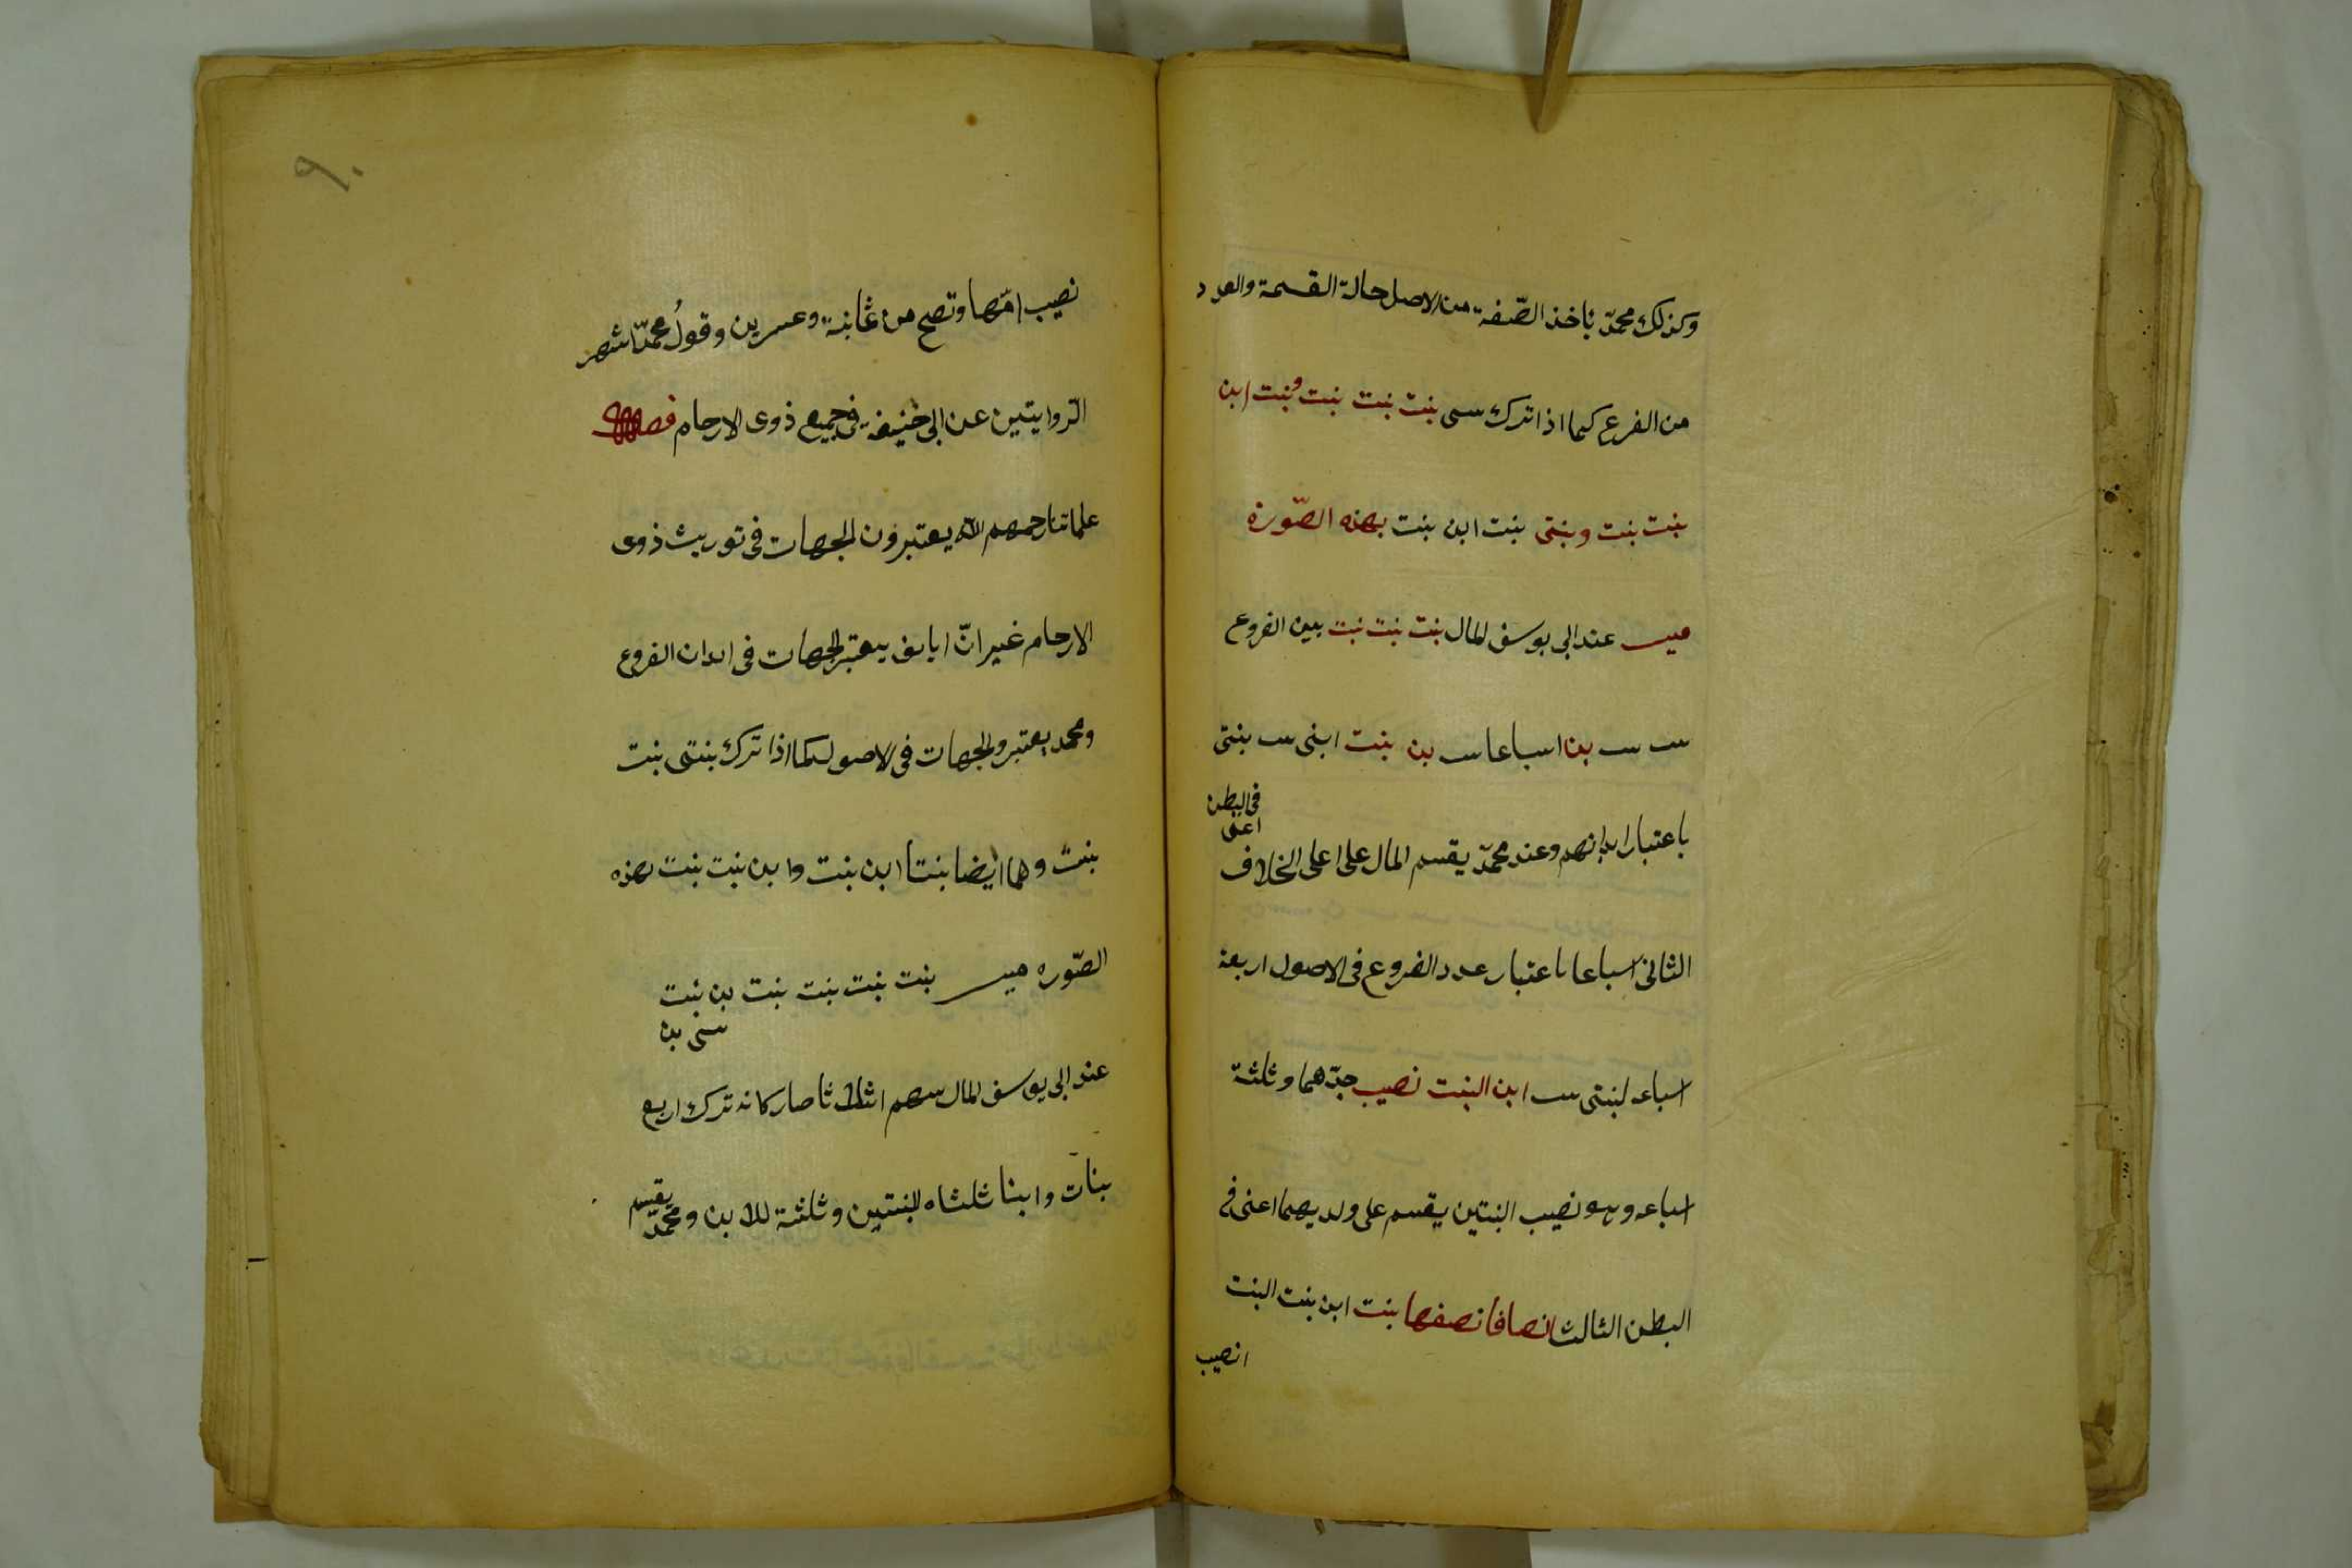 وكذلك محمدّ ياخذ الصّفة من الاصل حالة القسمة والعدد
من الفرع كما اذا ترك سى بنت بنت بنت وبنت ابن
بنت بنت وبنتى بنت ابن بنت بهذه الصّورة
ميـ عند ابى يوسف المال بنت بنت بنت بين الفروع
بن اسباعا بن بنت ابنى بنتى
فى البطن
اعنى
باعتبار ابدانهم وعند محمدّ يقسم المال على اعلى الخلاف
الثانى اسباعا باعتبار عدد الفروع فى الاصول اربعة
اسباعه لبنتى ابن البنت نصيب جدّهما وثلثة
اسباعه وهو نصيب البنتين يقسم على ولديهما اعنى فى
البطن الثالث انصافا نصفها بنت ابن بنت البنت
انصيب
٩٠
نصيب امّها وتصح من ثمانية وعشرين وقولُ محمدّ اشهر
الرّوايتين عن ابى حنيفه فى جميع ذوى الارحام فصل
علمائنا رحمهم الله يعتبرون الجهات فى توريث ذوى
الارحام غير انّ ابا يف يعتبر الجهات فى ابدان الفروع
ومحمد يعتبر والجهات فى الاصول كما اذا ترك بنتى بنت
بنت وهما ايضا بنتا ابن بنت وابن بنت بنت بهذه
الصّوره ميـ بنت بنت بنت بنت بن بنت
بن
عند ابى يوسف المال بينهم اثلاثا صار كانه ترك اربع
بنات وابنا ثلثاه للبنتين وثلثة للابن ومحمدّ يقسم